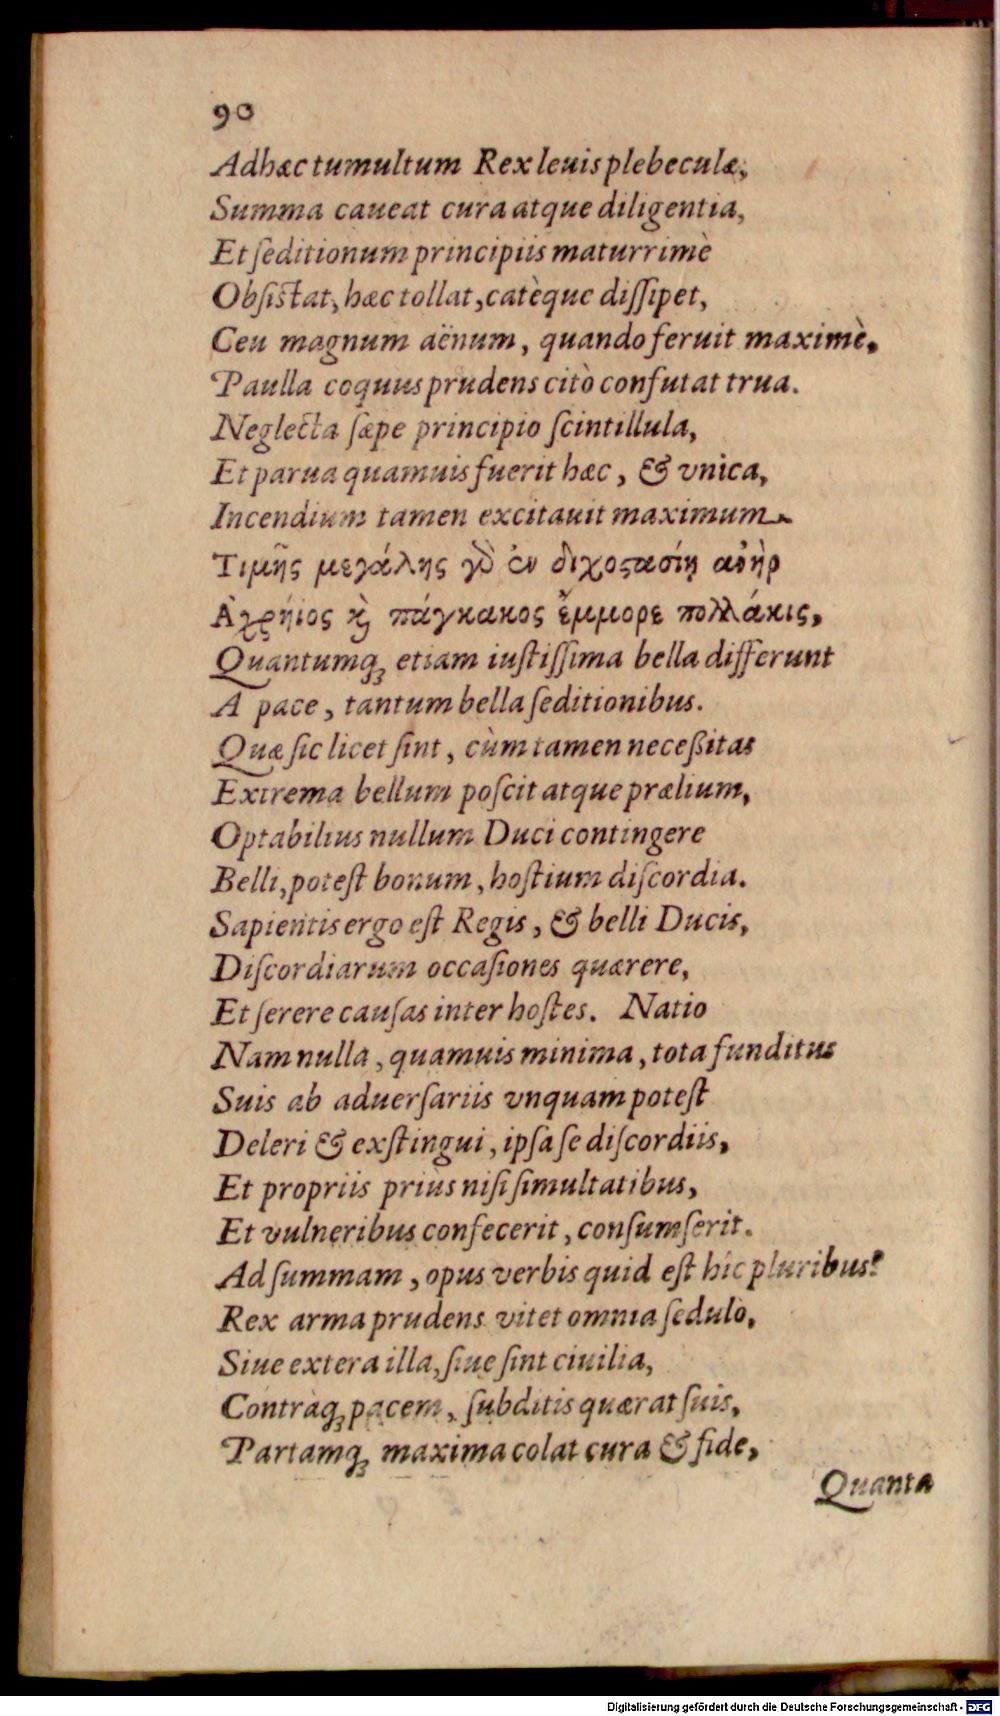 90
Ad hæc tumultum Rex leuis plebeculæ,
Summa caueat cura atque diligentia,
Et ſeditionum principiis maturrimè
Obſiſtat, hæc tollat, catèque diſſipet,
Ceu magnum aënum, quando feruit maximè,
Paulla coquus prudens citò confutat trua.
Neglecta ſæpe principio ſcintillula,
Et parua quamuis fuerit hæc, & vnica,
Incendium tamen excitauit maximum.
Τιμῆς μεγάλης γὸ ἐν διχοςασίῃ ἀνὴρ
Ἀχρήιος ϗ πάγκακος ἔμμορε πολλάκις,
Quantumꝗꝫ etiam iuſtiſſima bella differunt
A pace, tantum bella ſeditionibus.
Quæ ſic licet ſint, cùm tamen neceßitas
Extrema bellum poſcit atque prælium,
Optabilius nullum Duci contingere
Belli, poteſt bonum, hoſtium diſcordia.
Sapientis ergo eſt Regis, & belli Ducis,
Diſcordiarum occaſiones quærere,
Et ſerere cauſas inter hoſtes. Natio
Nam nulla, quamuis minima, tota funditus
Suis ab aduerſariis vnquam poteſt
Deleri & exſtingui, ipſa ſe diſcordiis,
Et propriis priùs niſi ſimultatibus,
Et vulneribus confecerit, conſumſerit.
Ad ſummam, opus verbis quid eſt hîc pluribus?
Rex arma prudens vitet omnia ſedulò,
Siue extera illa, ſiue ſint ciuilia,
Contràqꝫ pacem, ſubditis quærat ſuis,
Partamqꝫ maxima colat cura & fide,
Quanta
Digitalisierung gefördert durch die Deutsche Forschungsgemeinschaft - DFG